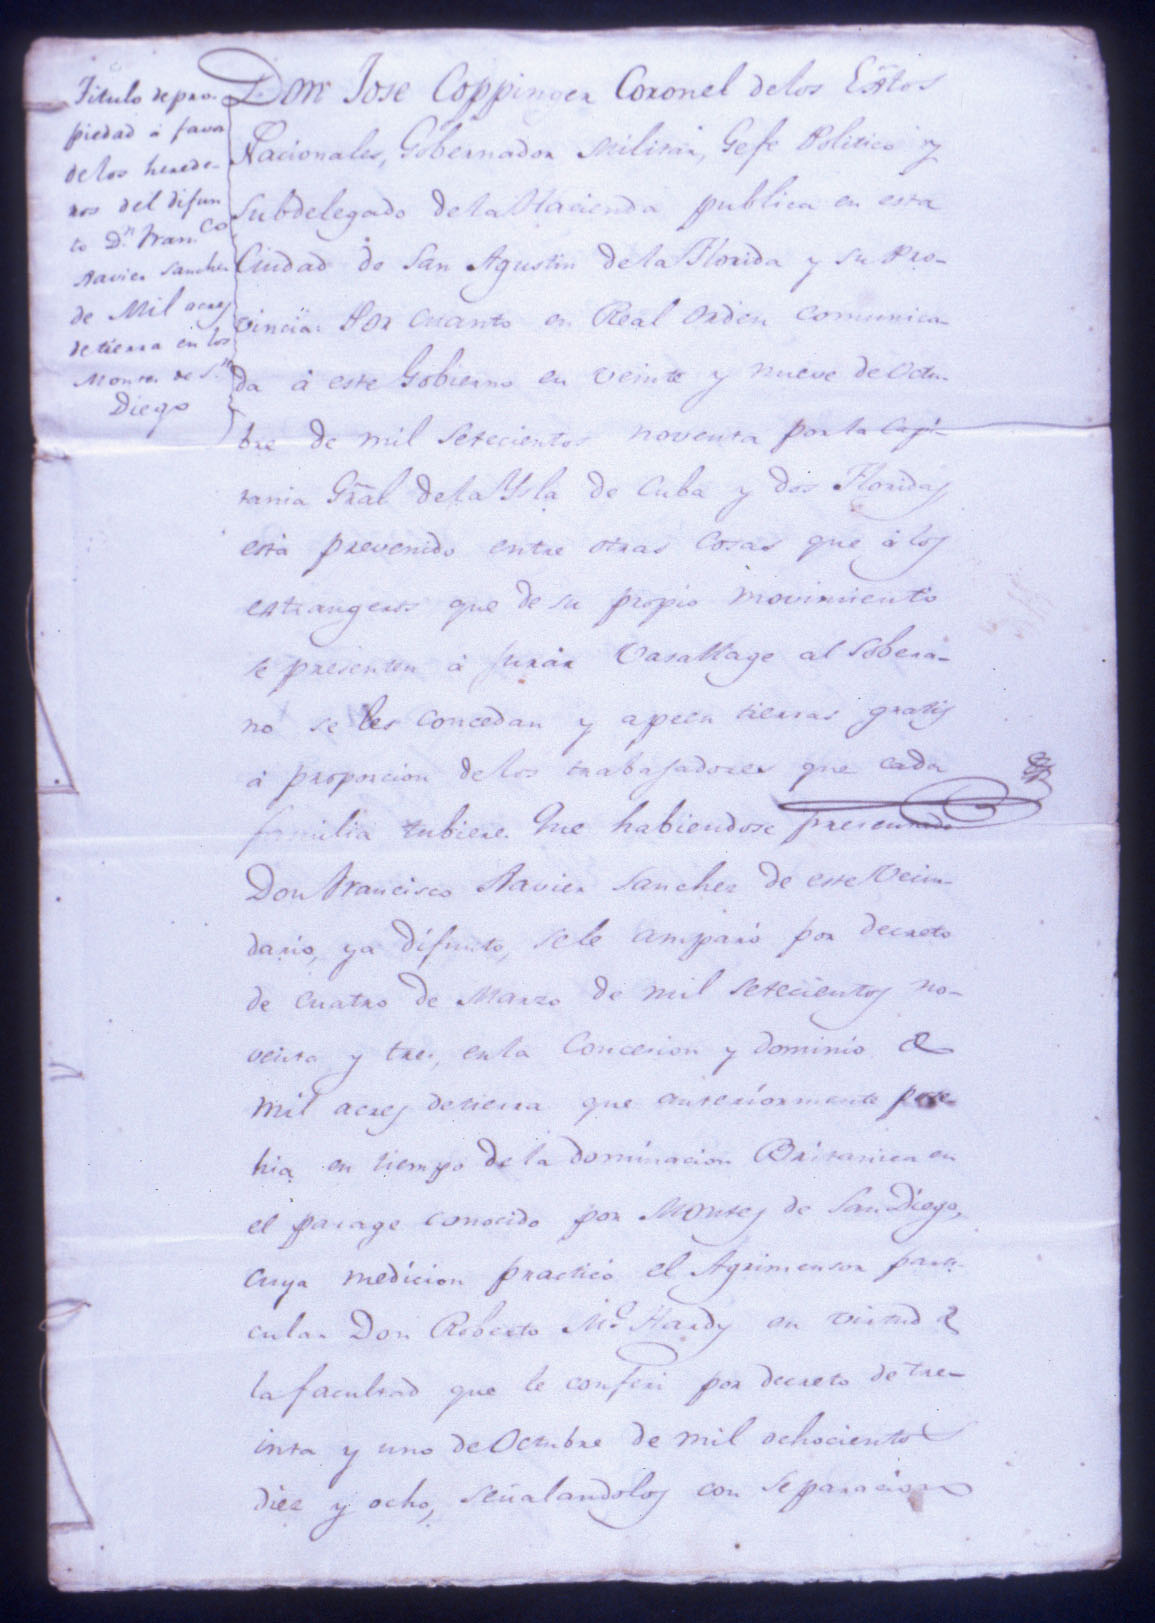 Titulo de pro-
piedad á favor
de los herede-
ros del difun
to D.n Fran.co
Xavier Sanchez
de Mil acres
de tierra en los
Montes de S.n
Diego
Don Jose Coppinger Coronel de los Extos
Nacionales, Gobernador Militar, Gefe Politico y
Subdelegado de la Hacienda publica en esta
Ciudad de San Agustin de la Florida y su Pro-
vincia: Por cuanto en Real orden comunica-
da á este Gobierno en veinte y nueve de Octu-
bre de mil setecientos noventa por la Capi-
tania Gräl de la Ysla de Cuba y dos Floridas
está prevenido entre otras cosas que á los
estrangeros que de su propio movimiento
se presenten á jurár Vasallage al Sobera-
no se les concedan y apeen tierras gratis
á proporcion de los trabajadores que cada
familia tubiere. Que habiendose presentado
Don Francisco Xavier Sanchez de este Vecin-
dario, ya difunto, se le amparó por decreto
de cuatro de Marzo de mil setecientos no-
venta y tres, en la Concesion y dominio de
mil acres de tierra que anteriormente pose-
hia en tiempo de la dominacion Britanica en
el parage conocido por Montes de San Diego,
cuya medicion practicó el Agrimensor parti-
cular Don Roberto Mc Hardy en virtud de
la facultad que le conferi por decreto de tre-
inta y uno de Octubre de mil ochocientos
diez y ocho, señalandolos con separacion